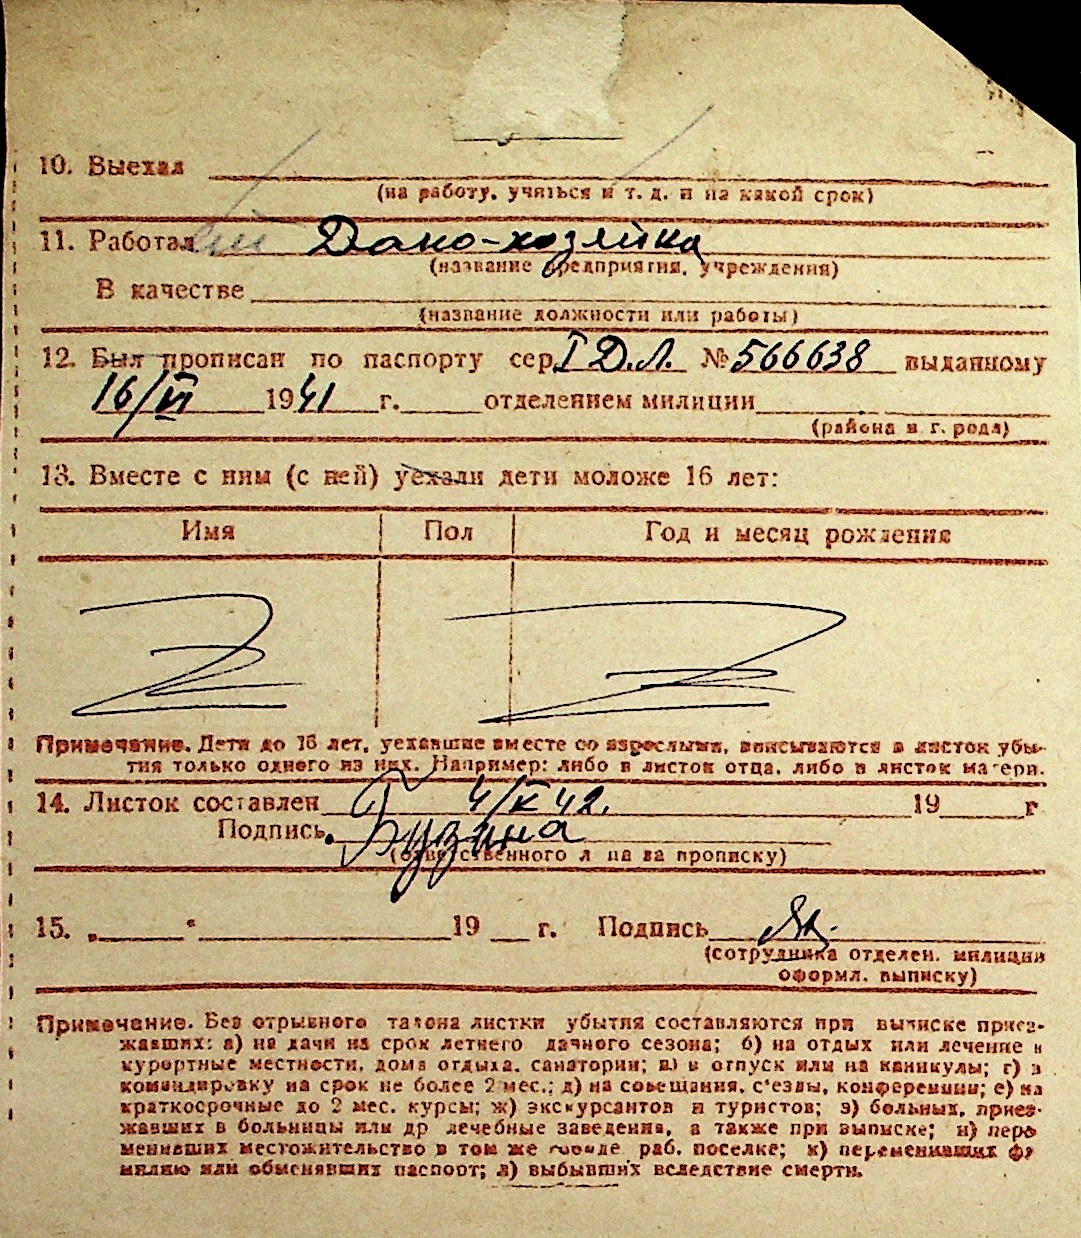 10. Выехал
(на работу, учиться и т. д. и на какой срок)
11. Работал Домо-хозяйка
(название предприятия, учреждения)
В качестве
(название должности или работы)
12. Был прописан по паспорту сер. I Д.Л. № 566638 выданному
16/VI 1941 г. отделением милиции
(района и г. рода)
13. Вместе с ним (с ней) уехали дети моложе 16 лет:
Имя Пол Год и месяц рождения
Примечание. Дети до 16 лет, уехавшие вместе со взрослыми, вписываются в листок убы-
тия только одного из них. Например: либо в листок отца, либо в листок матери.
14. Листок составлен 4/V 42. 19 г
Подпись
(ответственного л на за прописку)
15. „ " 19 г. Подпись
(сотрудника отделен. милиции
оформл. выписку)
Примечание. Без отрывного талона листки убытия составляются при выписке приез-
жавших: а) на дачи на срок летнего дачного сезона; б) на отдых или лечение в
курортные местности, дома отдыха, санатории; в) в отпуск или на каникулы; г) в
командировку на срок не более 2 мес.; д) на совещания, с'езды, конференции; е) на
краткосрочные до 2 мес. курсы; ж) экскурсантов и туристов; з) больных, приез-
жавших в больницы или др лечебные заведения, а также при выписке; и) пере
менивших местожительство в том же городе, раб. поселке; к) переменивших фа
милию или обменявших паспорт; л) выбывших вследствие смерти.